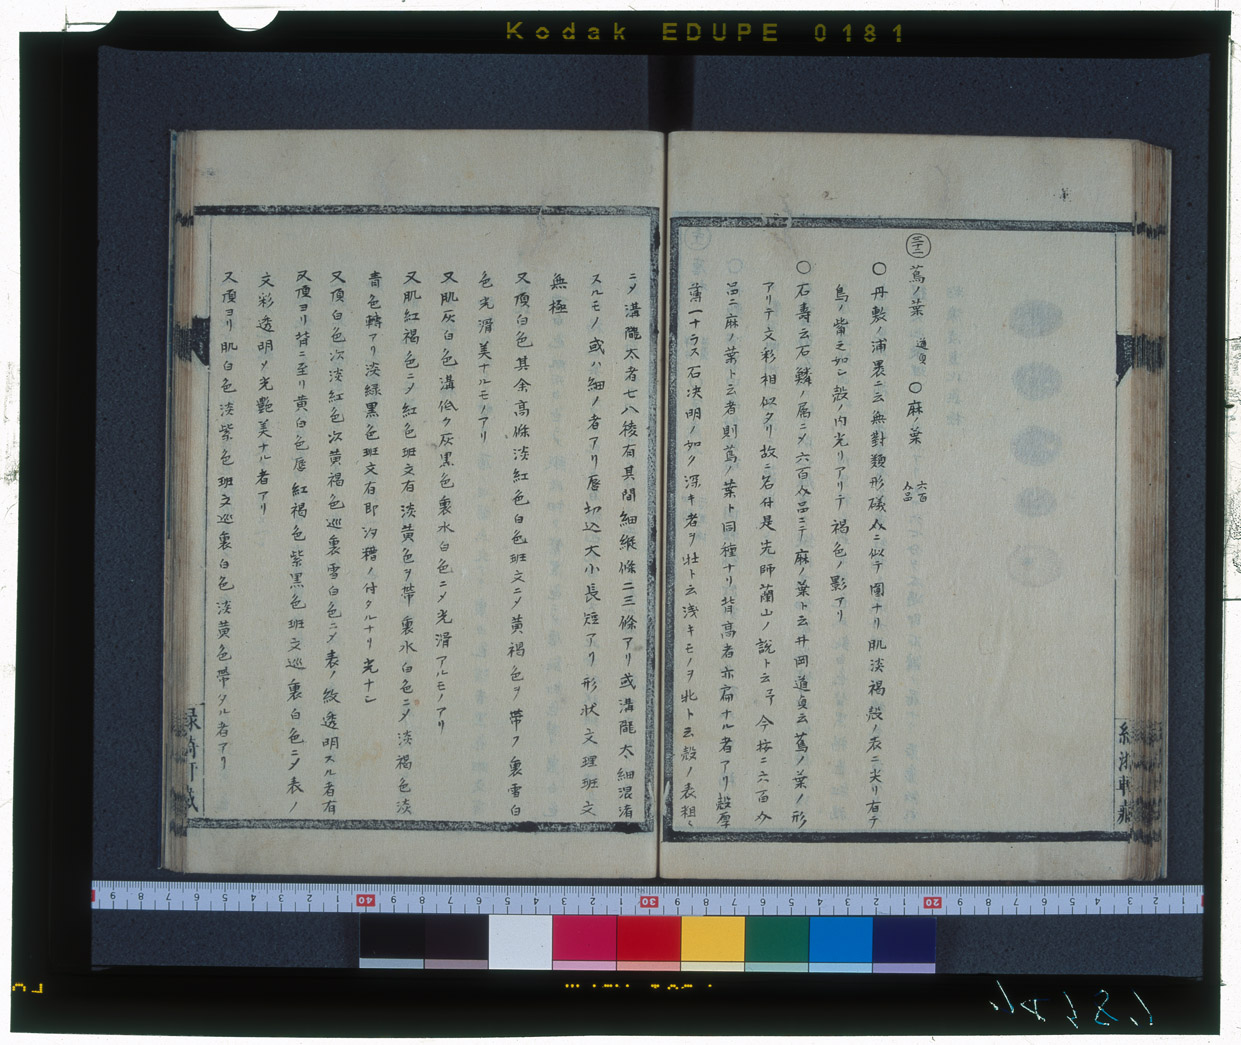 Kodak EDUPE 0181
三十二
蔦ノ葉 道貞 〇麻ノ葉 六百介品
〇丹敷ノ浦裏ニ云無對類形礒介ニ似テ圍ナリ肌淡褐殻ノ表ニ尖リ有テ
鳥ノ觜之如シ殻ノ内光リアリテ褐色ノ影アリ
〇石壽云石鱗ノ属ニメ六百介品ニテ麻ノ葉ト云丼岡道貞云蔦ノ葉ノ形
アリテ文彩相似タリ故ニ名付是先師蘭山ノ説ト云々今按ニ六百介
品ニ麻ノ葉ト云者則蔦ノ葉ト同種ナリ背高者亦扁ナル者アリ殻厚
薄一ナラス石决明ノ如ク深キ者ヲ壮ト云浅キモノヲ牝ト云殻ノ表粗ク
ニメ溝隴太者七八稜有其間細縦條二三條アリ或溝隴太細混渚
スルモノ或ハ細ノ者アリ唇切込大小長短アリ形状文理班文
無極
又頂白色其余高條淡紅色白色班文ニメ黄褐色ヲ帯フ裏雪白
色光滑美ナルモノアリ
又肌灰白色溝低ク灰黒色裏水白色ニメ光滑アルモノアリ
又肌紅褐色ニメ紅色班文有淡黄色ヲ帯裏水白色ニメ淡褐色淡
青色轉アリ淡緑黒色班文有即汐糟ノ付タルナリ光ナシ
又頂白色次淡紅色次黄褐色巡裏雪白色ニメ表ノ紋透明スル者有
又頂ヨリ背ニ至リ黄白色唇紅褐色紫黒色班文巡裏白色ニメ表ノ
文彩透明メ光艶美ナル者アリ
又頂ヨリ肌白色淡紫色班文巡裏白色淡黄色帯タル者アリ